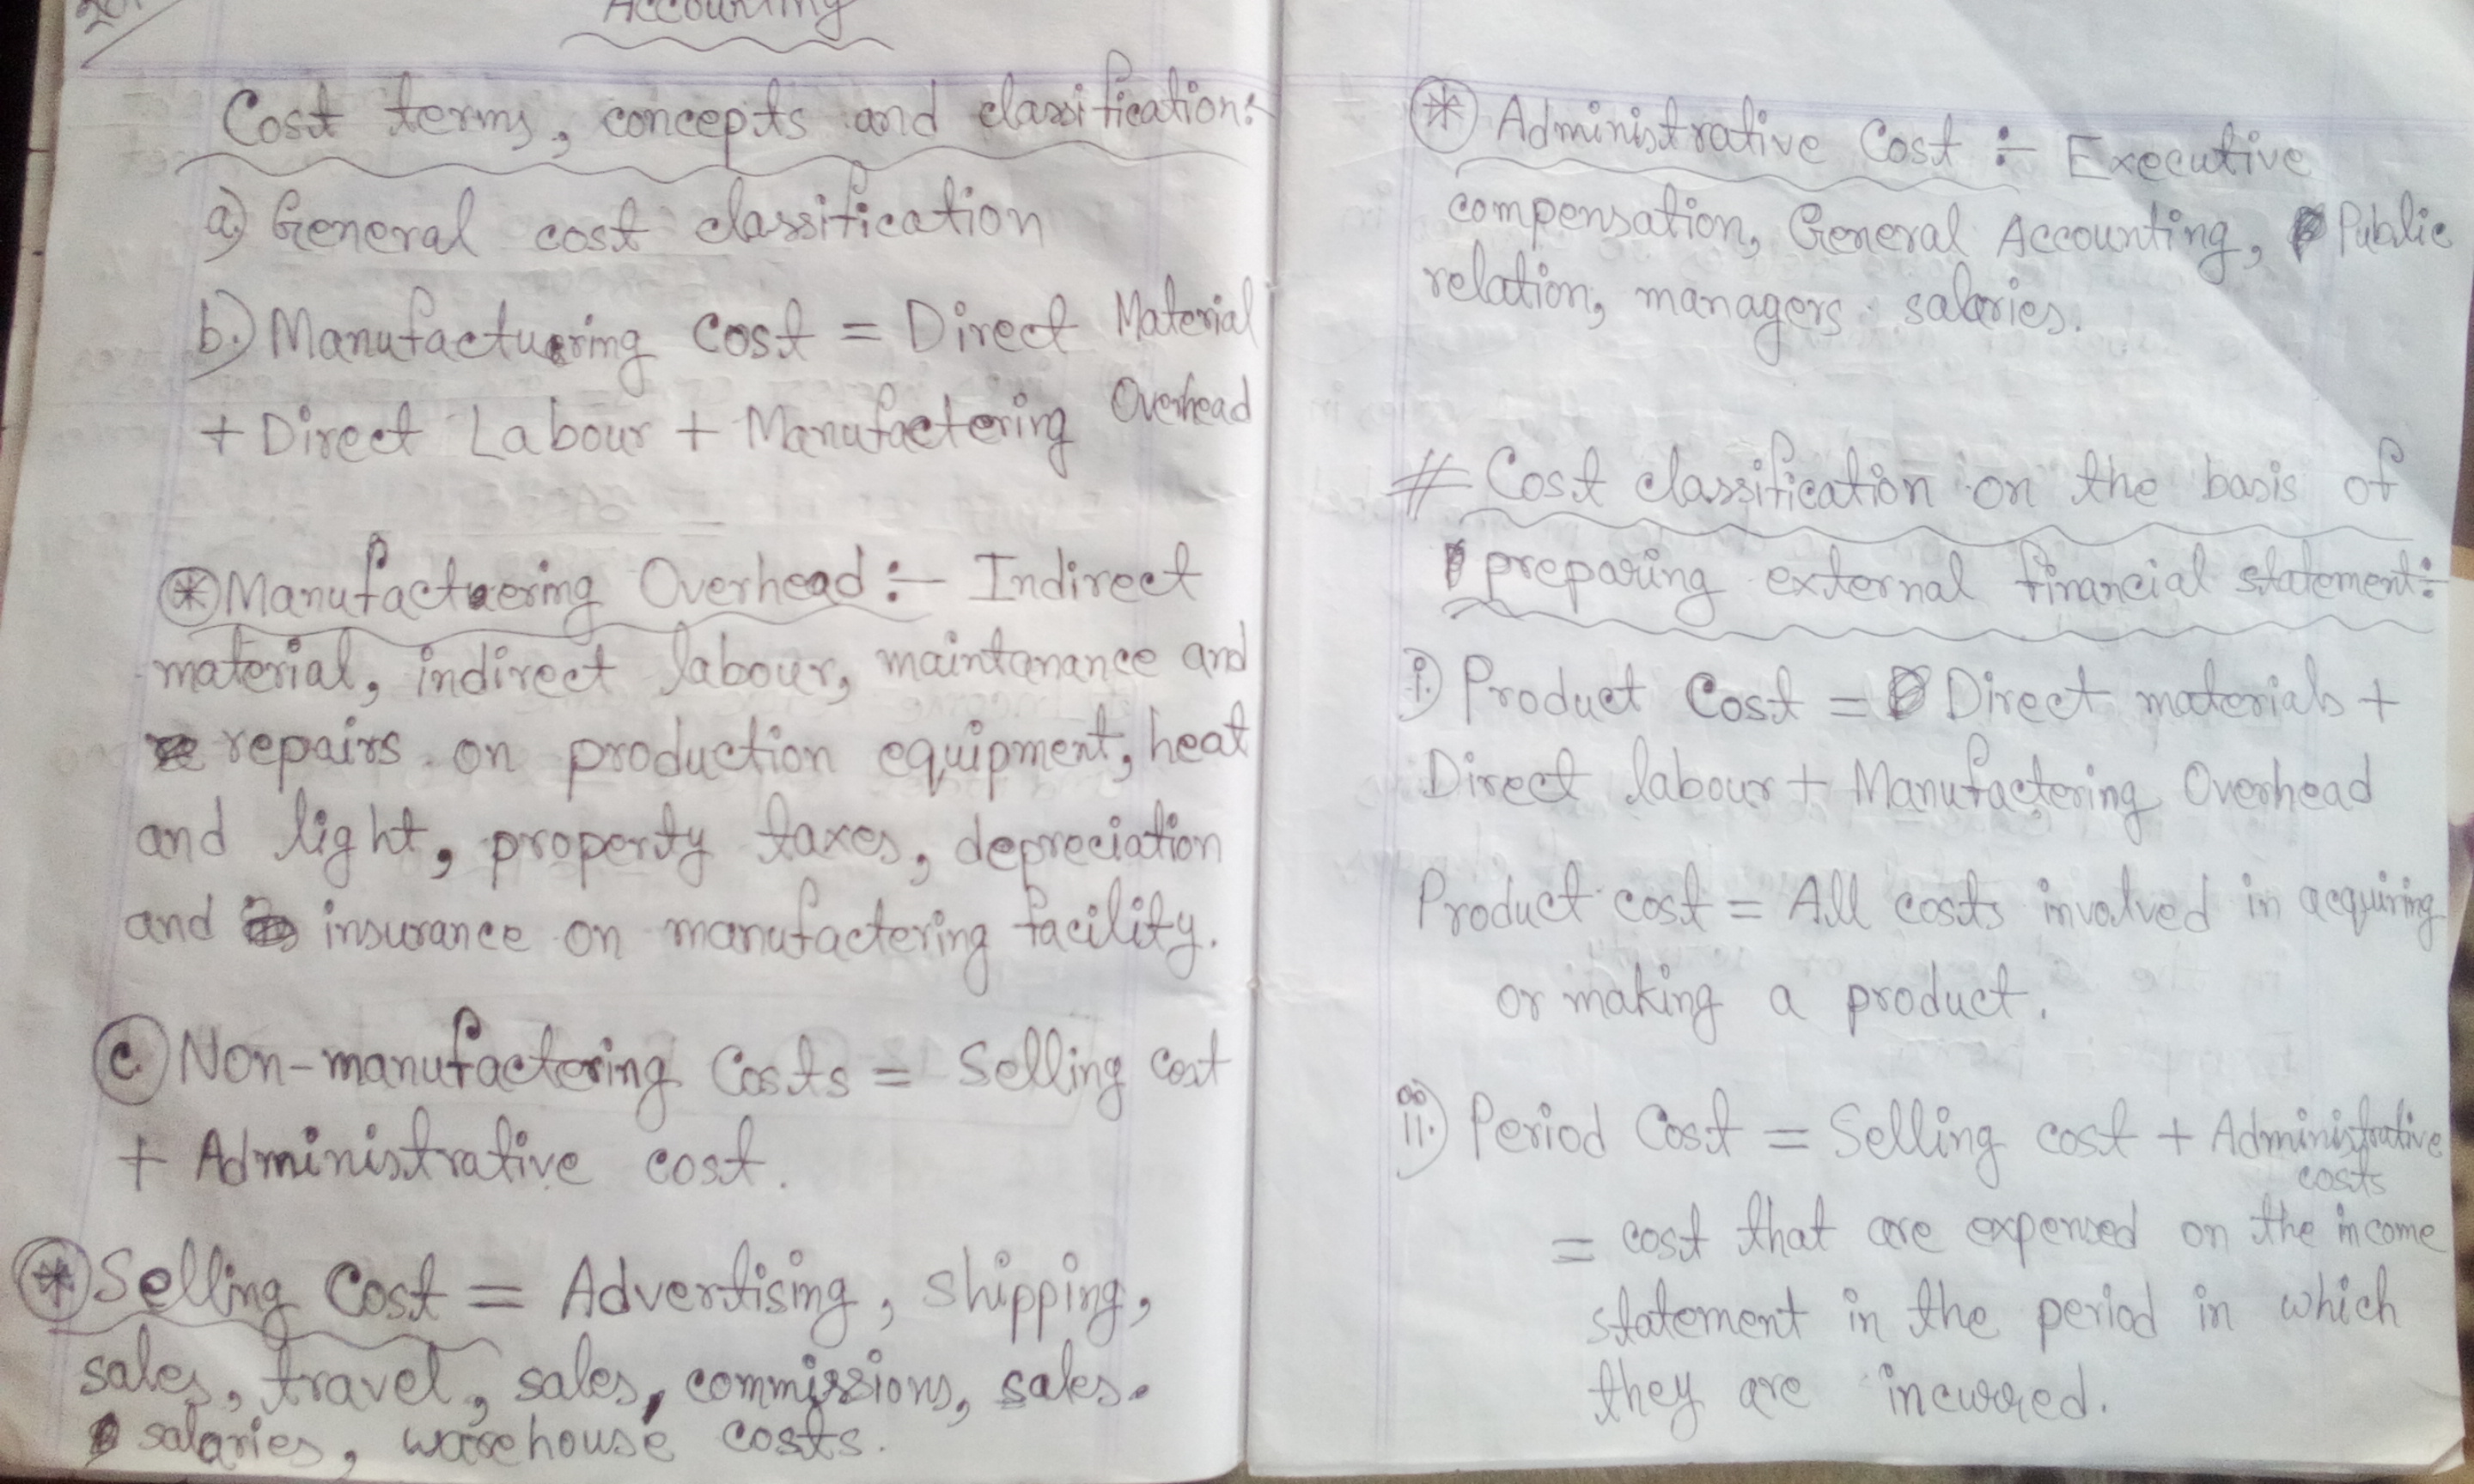 Accounting
Cost terms, concepts and classification:
a) General cost classification
b.) Manufactuering Cost = Direct Material
+ Direct Labour + Manufactering Overhead
* Manufactuering Overhead :- Indirect
material, indirect labour, maintanance and
repairs on production equipment, heat
and light, property taxes, depreciation
and insurance on manufactering facility.
c. Non-manufactering Costs = Selling cost
+ Administrative cost.
* Selling Cost = Advertising, shipping,
sales, travel, sales, commissions, sales.
salaries, warehouse costs.
* Administrative Cost :- Executive
compensation, General Accounting, Public
relation, managers salaries.
# Cost classification on the basis of
preparing external financial statement:-
i.) Product Cost = Direct materials +
Direct labour + Manufactering Overhead
Product cost = All costs involved in acquiring
or making a product.
ii.) Period Cost = Selling cost + Administrative
costs
= cost that are expensed on the income
statement in the period in which
they are incurred.